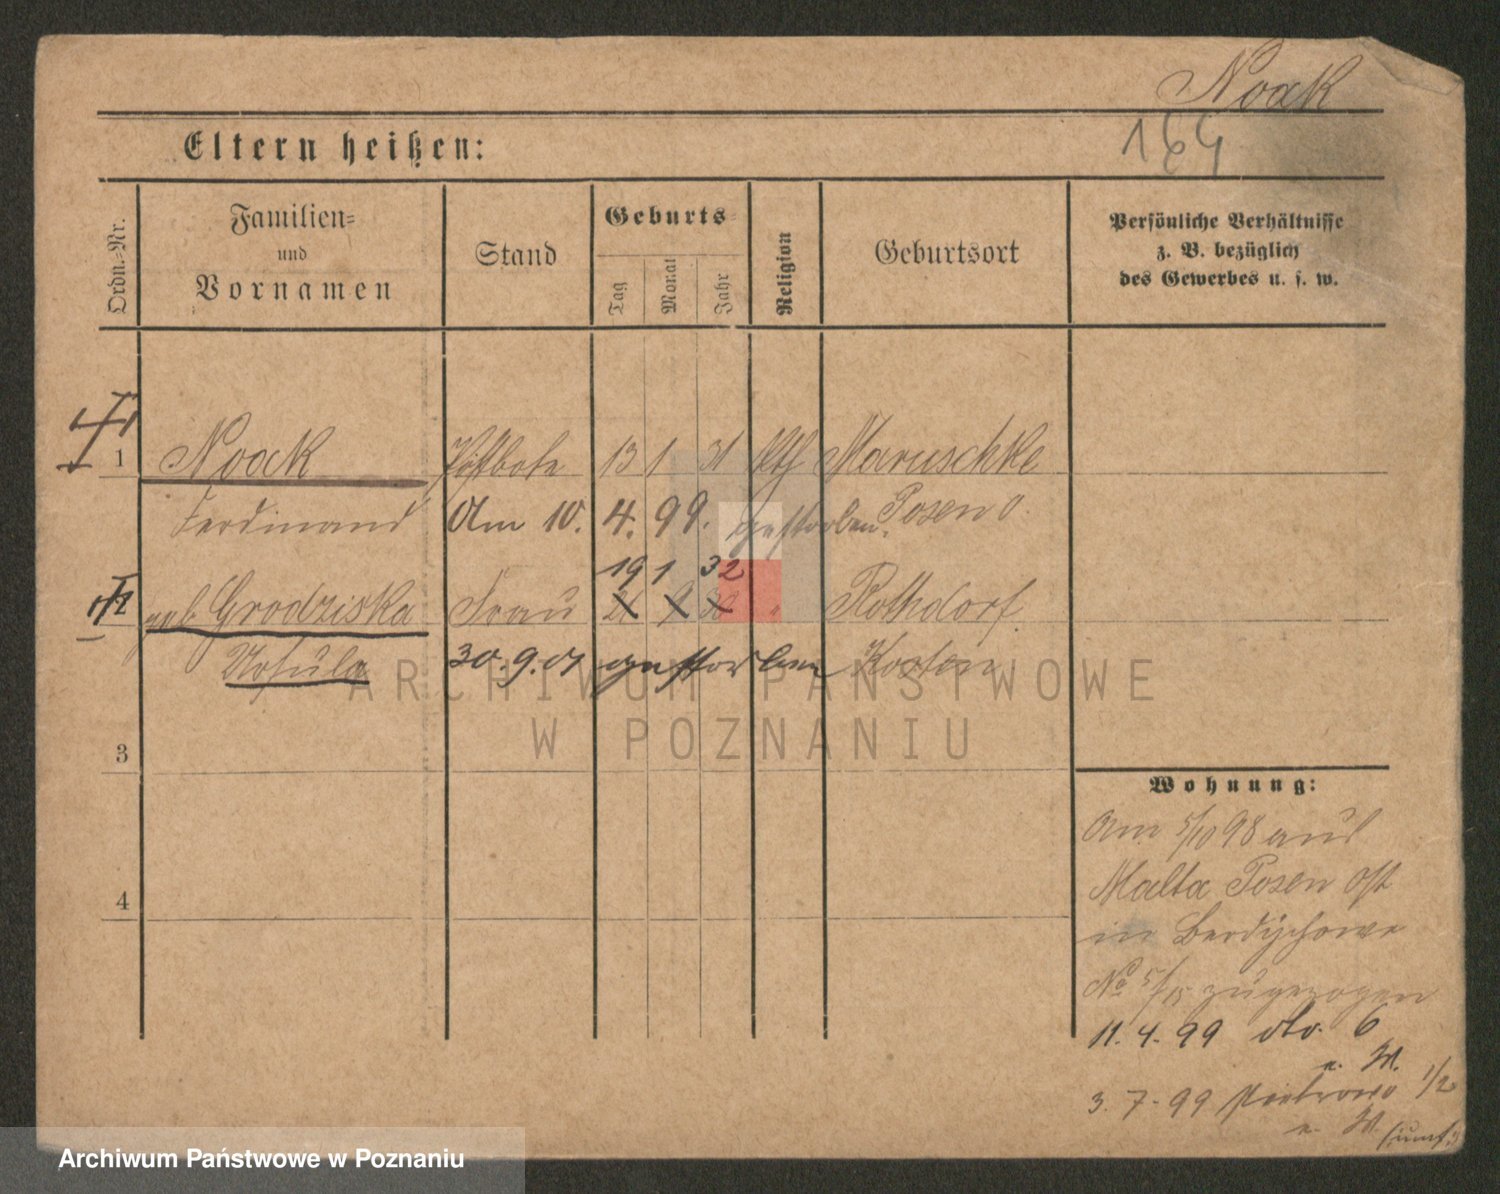 Noak
164
Eltern heißen:
Ordn.-Nr.
Familien=
und
Vornamen
Stand
Geburts=
Tag
Monat
Jahr
Religion
Geburtsort
Persönliche Verhältnisse
z. B. bezüglich
des Gewerbes u. s. w.
1 Noak Postbote 13 1 31 kth Maruschke
Ferdinand Am 10. 4. 99. gestorben. Posen O.
19 1 32
2 geb Grodziska Frau 21 9 30 " Rothdorf
Ursula 30.9.01 gestorben Kosten
3
4
Wohnung:
Am 5/10 98 aus
Malta Posen Ost
in Berdychowo
No 5/15 zugezogen
11.4.99 dto. 6
3.7.99 Piotrowo 1/2
ARCHIWUM PAŃSTWOWE
W POZNANIU
Archiwum Państwowe w Poznaniu